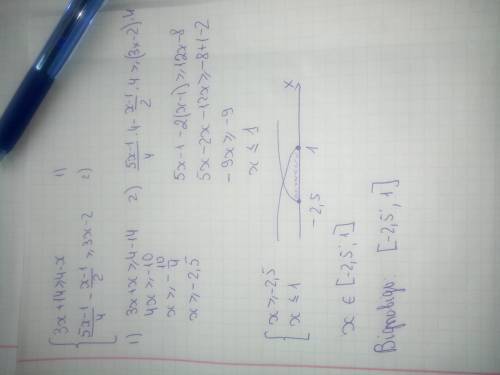 { 3x+14⩾4-x 1)
{ (5x-1)/4 - (x-1)/2 ⩾ 3x-2 2)
1) 3x+x⩾4-14
4x⩾-10
x⩾-10/4
x⩾-2,5
2) (5x-1)/4 ·4 - (x-1)/2 ·4 ⩾ (3x-2)·4
5x-1-2(x-1)⩾12x-8
5x-2x-12x⩾-8+1-2
-9x⩾-9
x⩽1
{ x⩾-2,5
{ x⩽1
-2,5 1 x
x ∈ [-2,5; 1]
Відповідь: [-2,5; 1]